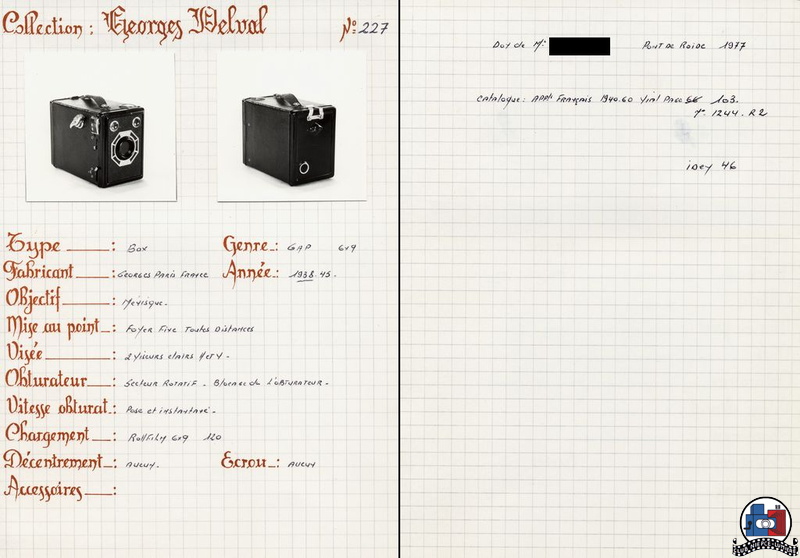 Collection : Georges Delval
Nº: 227
Type : Box
Genre : GAP 6x9
Fabricant : Georges Paris France
Année : 1938.45.
Objectif : Ménisque.
Mise au point : Foyer Fixe Toutes Distances
Visée : 2 Viseurs clairs H et V.
Obturateur : Secteur Rotatif. Blocage de L'obturateur.
Vitesse obturat. : Pose et instantané.
Chargement : RollFilm 6x9 120
Décentrement : Aucun.
Ecrou : Aucun
Accessoires :
Don de Mr
Pont de Roide 1977
Catalogue : Appls Français 1940.60 Vial Page 103.
Nº 1244. R2